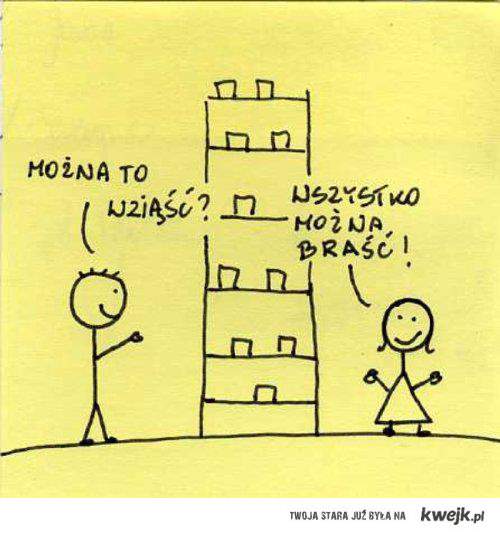 MOŻNA TO
WZIĄŚĆ?
WSZYSTKO
MOŻNA
BRAŚĆ!
TWOJA STARA JUŻ BYŁA NA kwejk.pl